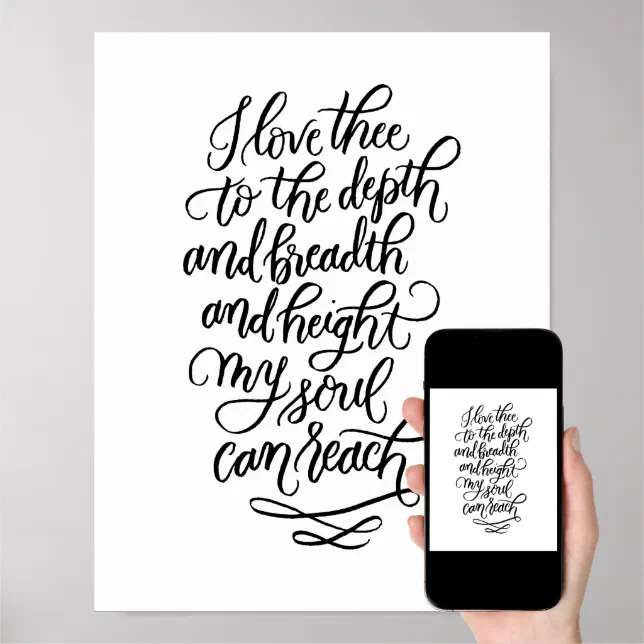 I love thee
to the depth
and breadth
and height
my soul
can reach
I love thee
to the depth
and breadth
and height
my soul
can reach